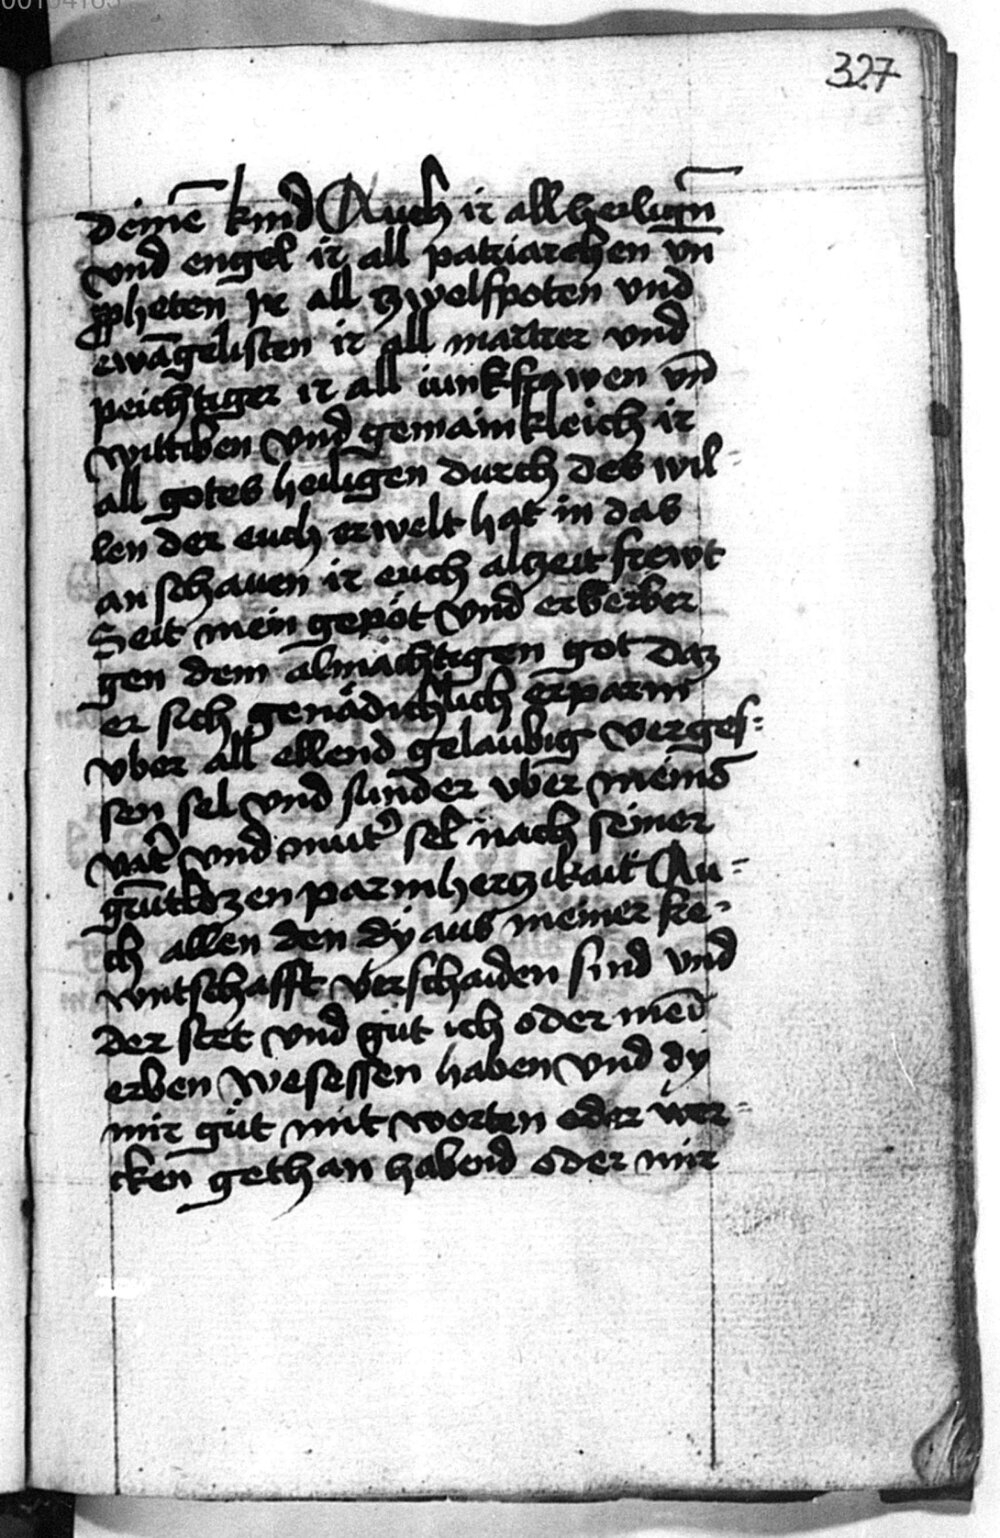 327
deinē kind Auch ir all heiligñ
vnd engel ir all patriarchen vn̄
ppheten Ir all zwelfpoten vnd
ewāgelisten ir all martrer vnd
peichtiger ir all iunkfrawen vn̄d
wittiben vnd gemainkleich ir
all gotes heiligen durch des wil⸗
len der euch erwelt hat in das
an schauen ir euch alczeit frewt
Seit mein gepöt vnd erberber
gen dem almächtigen got daz
er sich genädichlich erparm
vber all ellend gelaubig verges⸗
sen sel vnd sunder vber meins
vat̕ vnd mut̕ sel nach seiner
grūtlozen parmherczikait Au⸗
ch allen den dy aus meiner ke⸗
wntschafft verschaiden sind vnd
der stet vnd güt ich oder mei
erben wesessen haben vnd dy
mir güt mit worten oder wer⸗
cken gethan habend oder mir